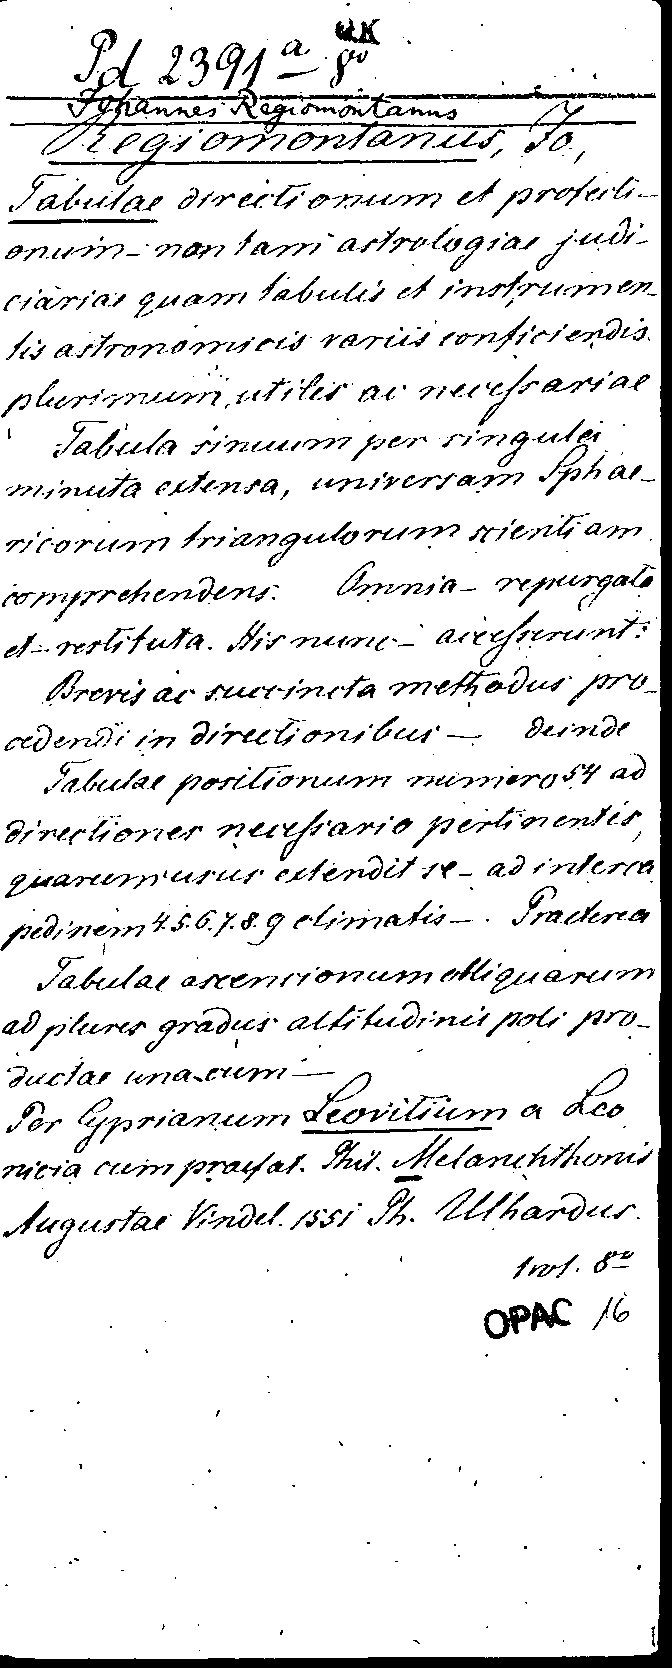 UK
Pd 2391 a 8vo
Johannes Regiomontanus
Regiomontanus, Jo,
Tabulae directionum et profecti-
onum - non tam astrologiae judi-
ciariae quam tabulis et instrumen-
tis astronomicis variis conficiendis
plurimum utiles ac necessariae
Tabula sinuum per singula
minuta extensa, universam Sphae-
ricorum triangulorum scientiam
comprehendens. Omnia - repurgata
et - restituta. His nunc - accesserunt:
Brevis ac succincta methodus pro-
cedendi in directionibus — deinde
Tabulae positionum numero 54 ad
directiones necessario pertinentes,
quarum usus extendit se - ad interca
pedinem 4.5.6.7.8.9 climatis —. Praeterea
Tabulae ascencionum obliquarum
ad plures gradus altitudinis poli pro-
ductae una cum —
Per Cyprianum Leovitium a Leo
nicia cum praefat. Phil. Melanchthonis
Augustae Vindel. 1551 Ph. Ulhardus.
1 vol. 8vo
OPAC 16